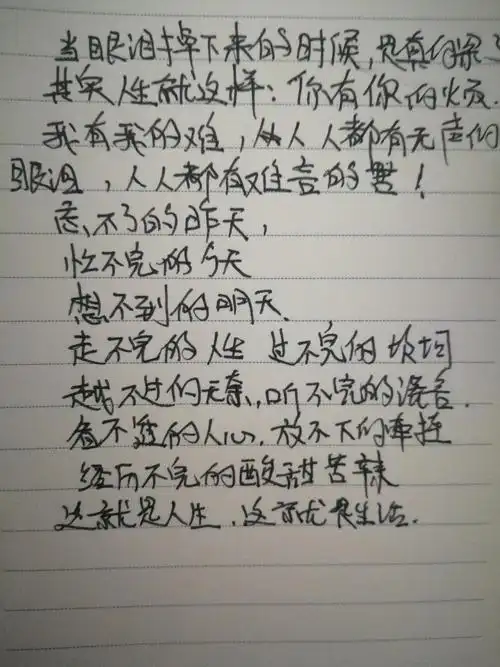 当眼泪掉下来的时候,是真的累了
其实人生就这样:你有你的烦,
我有我的难,人人都有无声的
眼泪,人人都有难言的苦!
忘不了的昨天,
忙不完的今天
想不到的明天.
走不完的人生 过不完的坎坷
越不过的无奈,听不完的谎言.
看不透的人心,放不下的牵挂
经历不完的酸甜苦辣
这就是人生,这就是生活.